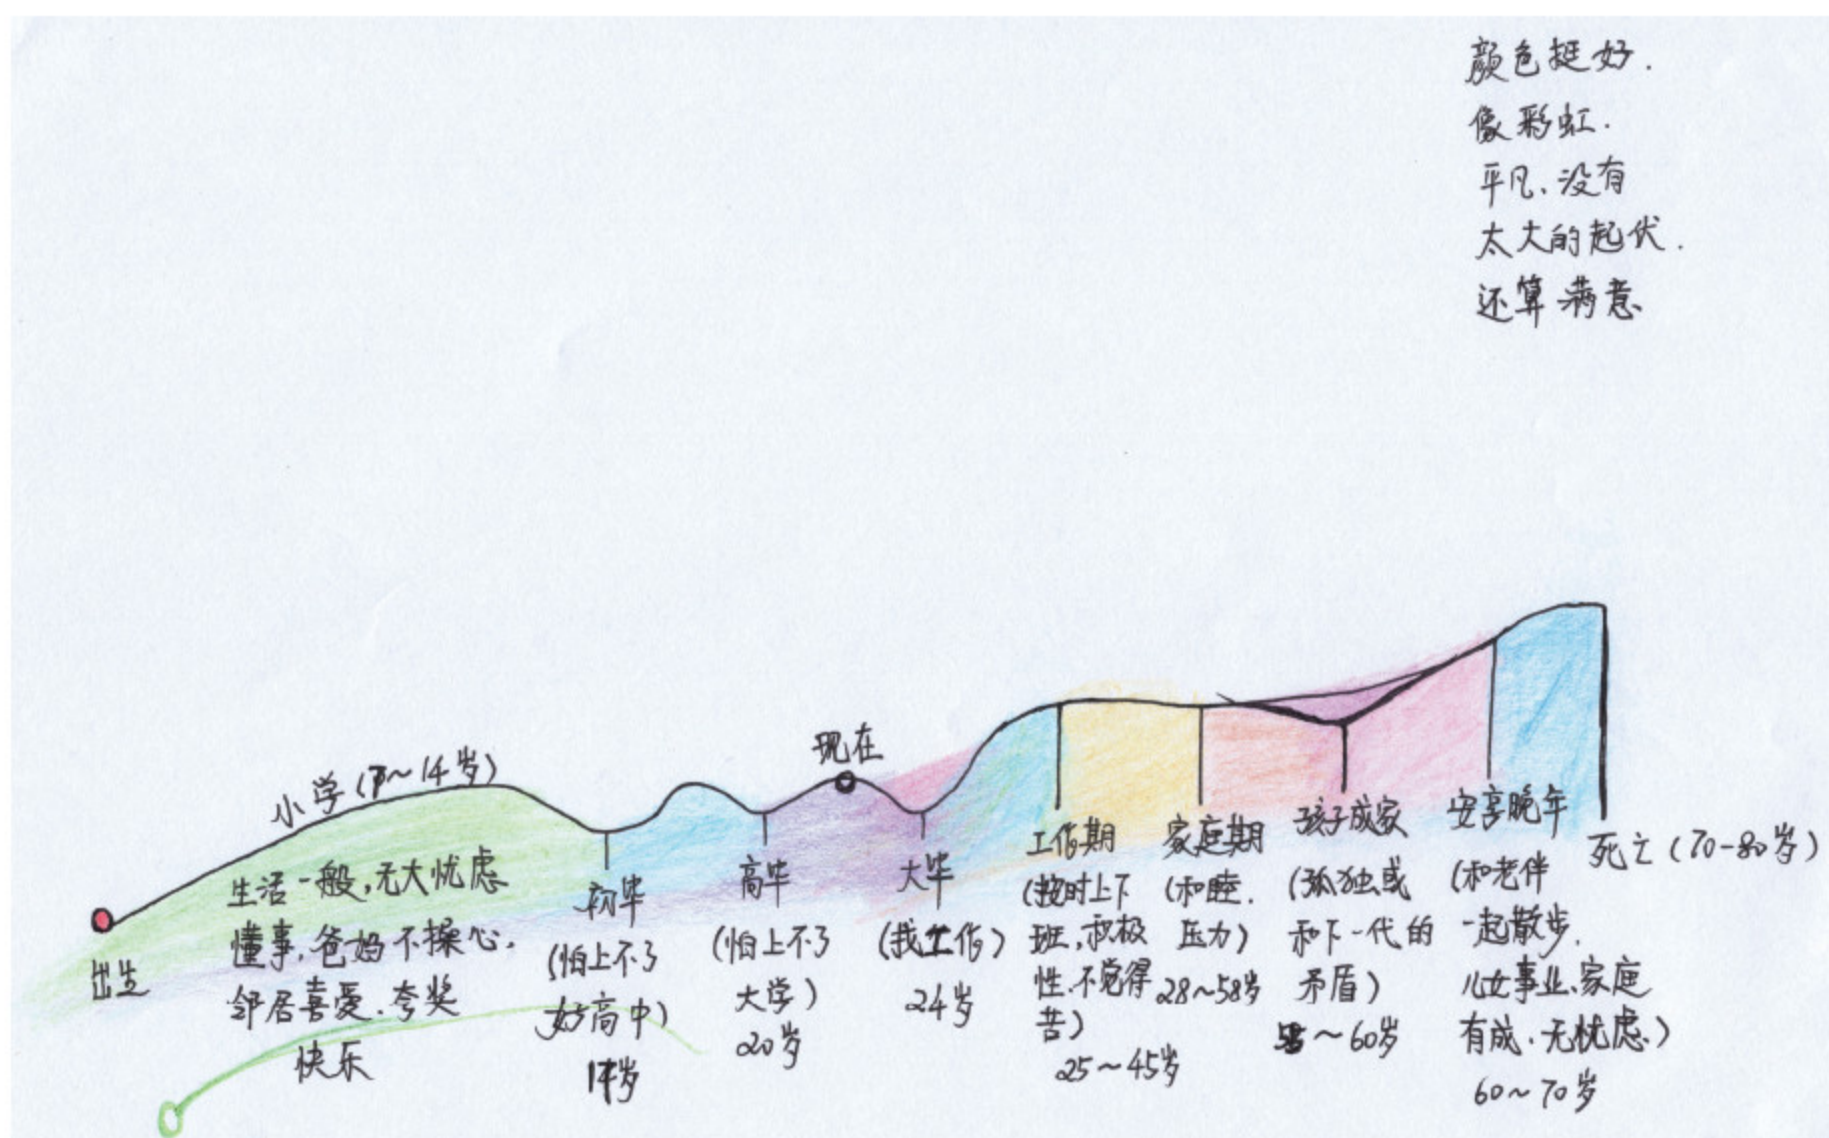 颜色挺好.
像彩虹.
平凡、没有
太大的起伏.
还算满意、
现在
小学(7~14岁)
出生
生活一般,无大忧虑
懂事,爸妈不操心,
邻居喜爱、夸奖
快乐
初毕
(怕上不了
好高中)
17岁
高毕
(怕上不了
大学)
20岁
大毕
(找工作)
24岁
工作期
(按时上下
班,积极
性、不觉得
苦)
25~45岁
家庭期
(和睦.
压力)
28~58岁
孩子成家
(孤独或
和下一代的
矛盾)
~60岁
安享晚年
(和老伴
一起散步,
儿女事业、家庭
有成、无忧虑、)
60~70岁
死亡(70-80岁)